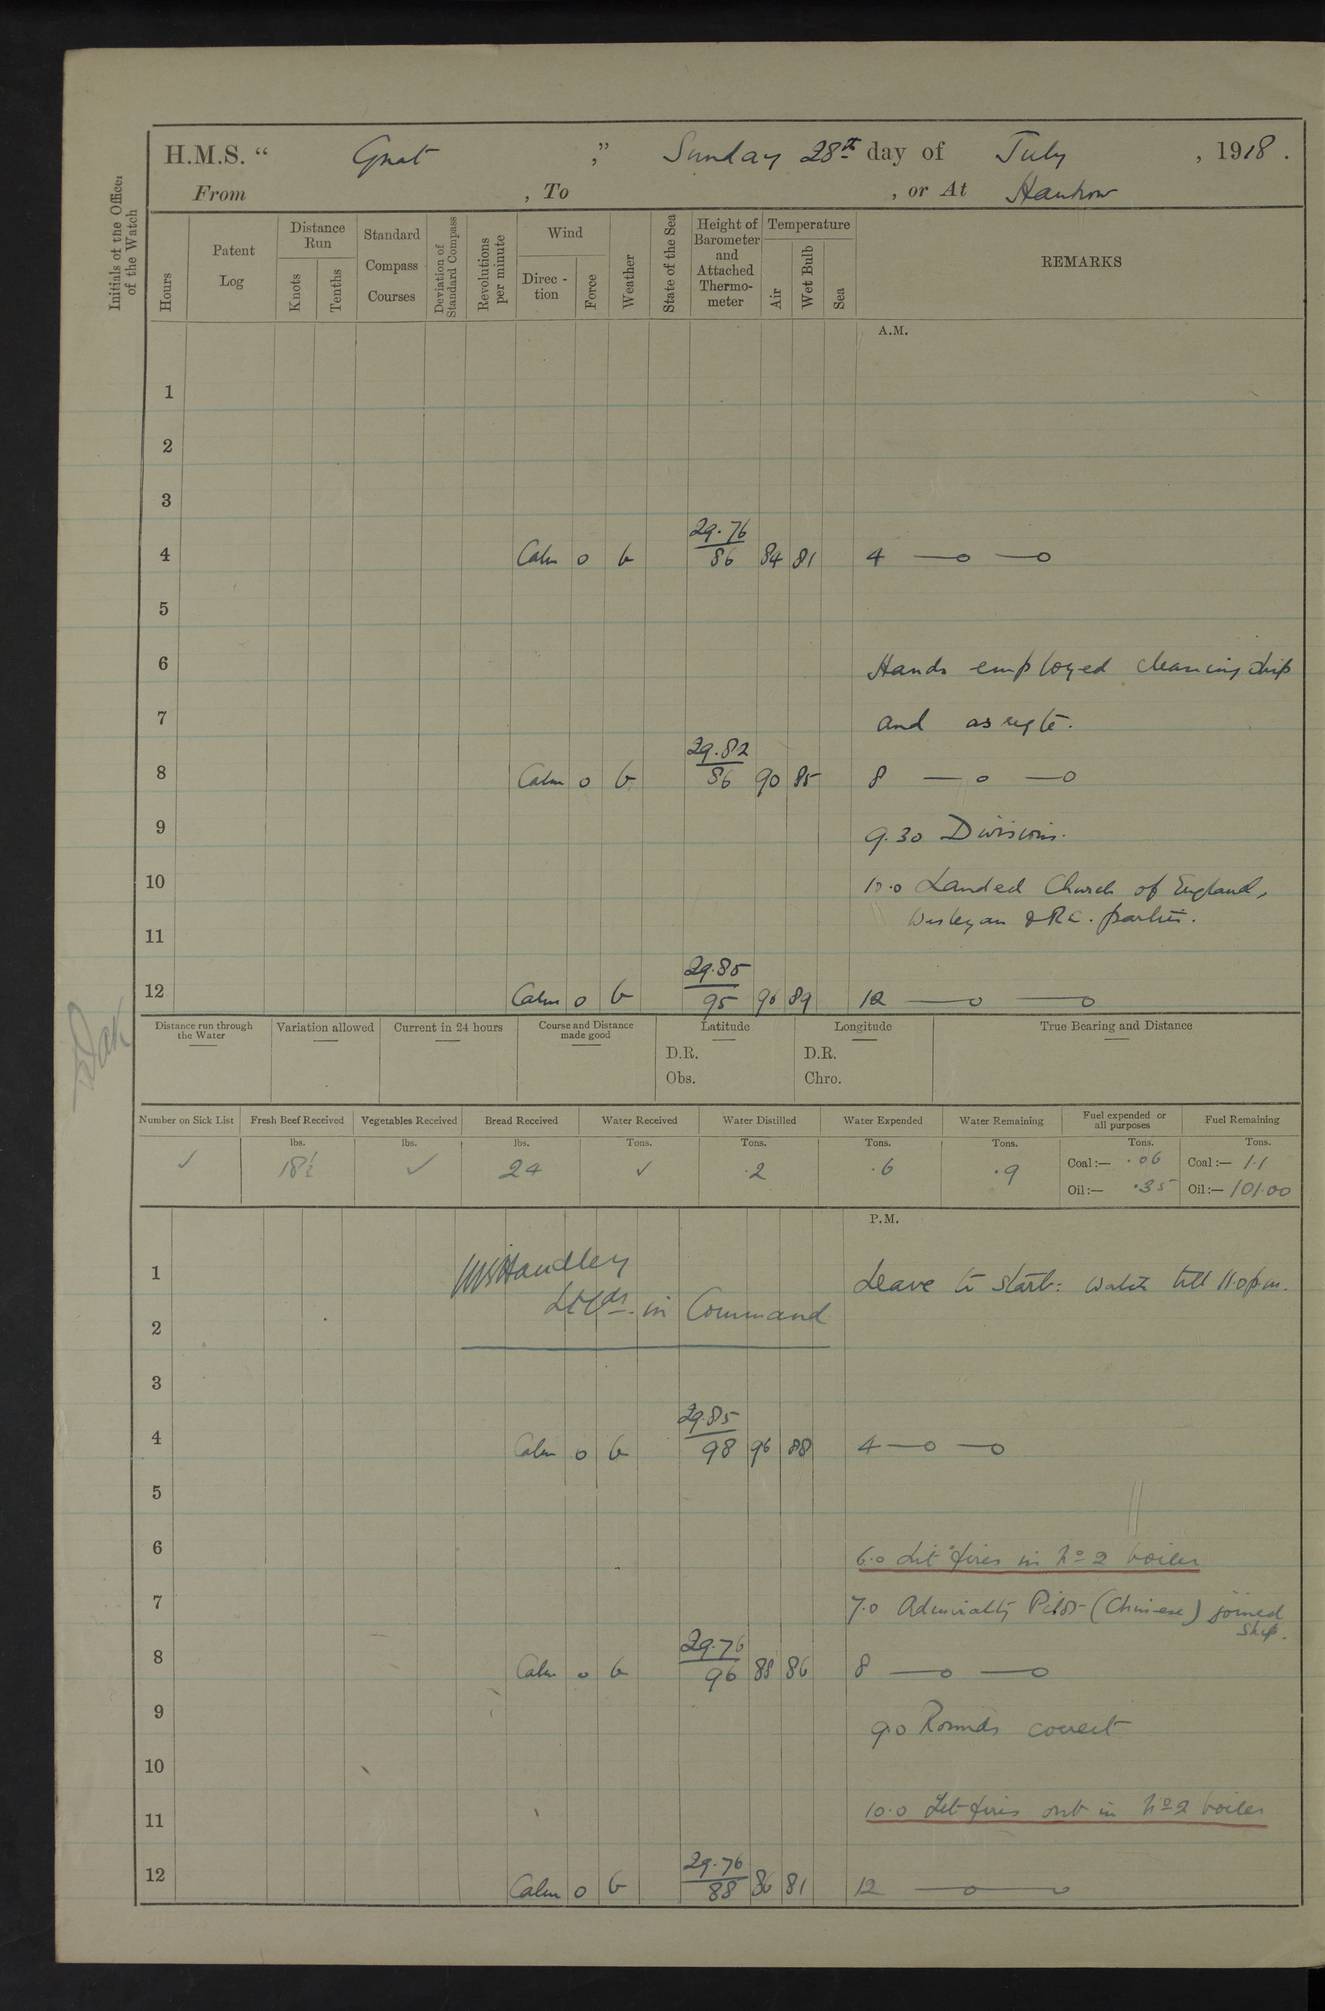 H.M.S. “ Gnat ,” Sunday 28th day of July , 1918 .
From , To , or At Hankow
Initials of the Officer of the Watch
Hours
Patent Log
Distance Run
Knots
Tenths
Standard Compass Courses
Deviation of Standard Compass
Revolutions per minute
Wind
Direc - tion
Force
Weather
State of the Sea
Height of Barometer and Attached Thermo- meter
Temperature
Air
Wet Bulb
Sea
REMARKS
A.M.
1
2
3
29.76
4 Calm 0 b 86 84 81 4 —o —o
5
6 Hands employed cleaning ship
7 and as reqte.
29.82
8 Calm 0 b 86 90 85 8 —o —o
9 9.30 Divisions.
10 10.0 Landed Church of England,
Wesleyan & R.C. parties.
11
29.85
12 Calm 0 b 95 96 89 12 —o —o
Distance run through the Water
Variation allowed
Current in 24 hours
Course and Distance made good
Latitude
D.R.
Obs.
Longitude
D.R.
Chro.
True Bearing and Distance
Number on Sick List ✓
Fresh Beef Received lbs. 18½
Vegetables Received lbs. ✓
Bread Received lbs. 24
Water Received Tons. ✓
Water Distilled Tons. .2
Water Expended Tons. .6
Water Remaining Tons. .9
Fuel expended or all purposes Tons.
Coal:— .06
Oil:— .35
Fuel Remaining Tons.
Coal:— 1.1
Oil:— 101.00
P.M.
1 Handley Leave to Starb: watch till 11.0 p.m.
2 Lt Cdr. in Command
3
29.85
4 Calm 0 b 98 96 88 4 —o —o
5
6 6.0 Lit fires in No 2 boiler
7 7.0 Admiralty Pilot (Chinese) joined
ship.
29.76
8 Calm 0 b 96 88 86 8 —o —o
9 9.0 Rounds correct
10
11 10.0 Let fires out in No 2 boiler
29.76
12 Calm 0 b 88 86 81 12 —o —o